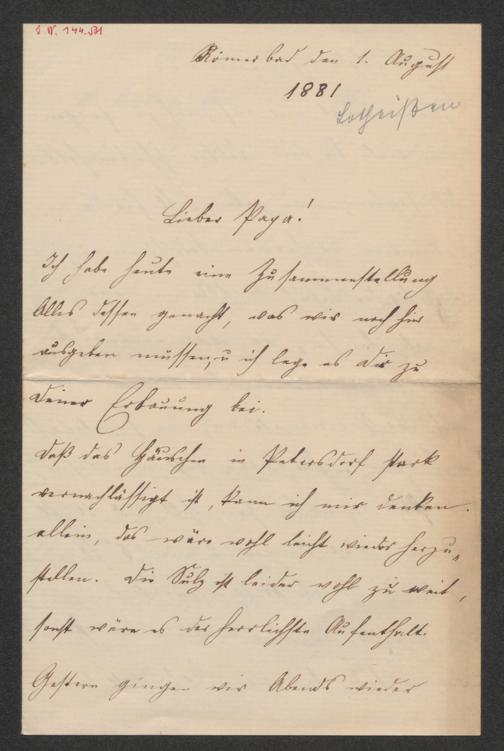 I. N. 144.531
Römerbad den 1. August
1881
Lotheißen
Lieber Papa!
Ich habe heute eine Zusammenstellung
Alles dessen gemacht, was wir noch hier
ausgeben müssen, u ich lege es Dir zu
Deiner Erbauung bei.
Daß das Häuschen in Petersdorf stark
vernachlässigt ist, kann ich mir denken.
allein, das wäre wohl leicht wieder herzu„
stellen. Die Sulz ist leider wohl zu weit,
sonst wäre es der herrlichste Aufenthalt.
Gestern gingen wir Abends wieder